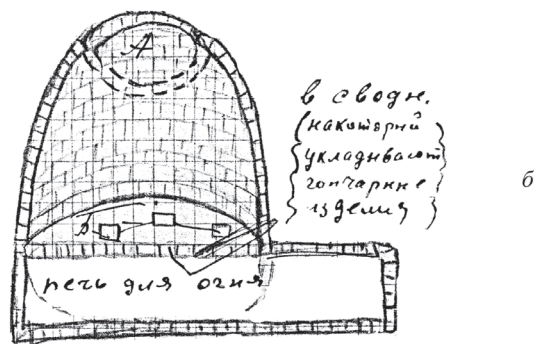 А
в сводн.
(накоторій
укладывают
гончарные
изделия)
б
В
печь для огня